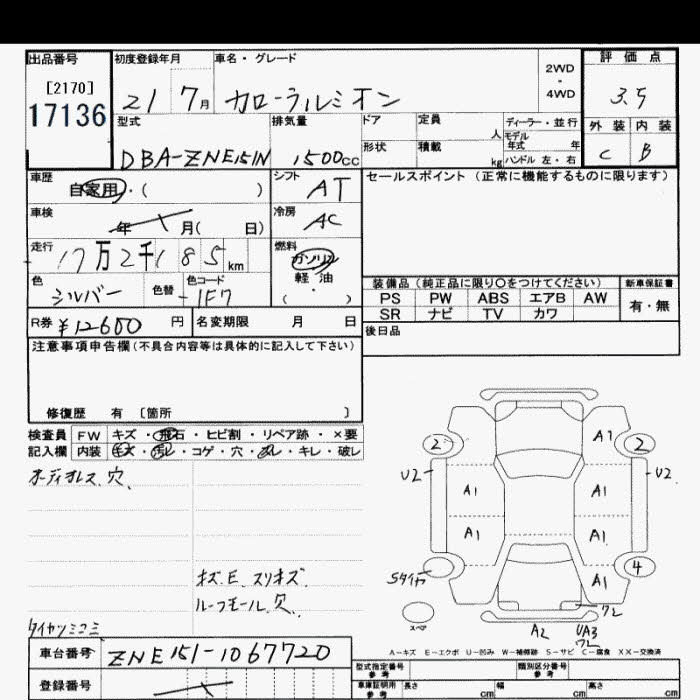 出品番号 初度登録年月 車名・グレード 2WD・4WD 評価点
[2170]
17136 21 7月 カローラルミオン 3.5
型式 排気量 ドア 定員 人 ディーラー・並行 外装 内装
モデル年式 年
DBA-ZNE151N 1500cc 形状 積載 kg ハンドル 左・右 C B
車歴 自家用・( ) シフト AT セールスポイント (正常に機能するものに限ります)
車検 年 月( 日) 冷房 AC
走行 17万2千185km 燃料 ガソリン
軽油
( ・ )
色 シルバー 色替 色コード 1F7
装備品 (純正品に限り〇をつけてください) 新車保証書
PS PW ABS エアB AW 有・無
SR ナビ TV カワ
R券 ¥12680 円 名変期限 月 日 後日品
注意事項申告欄(不具合内容等は具体的に記入して下さい)
修復歴 有 〔箇所 〕
検査員 FW キズ・飛石・ヒビ割・リペア跡・×要
記入欄 内装 キズ・汚レ・コゲ・穴・スレ・キレ・破レ
オーディオレス、穴、
キズ、E、スリキズ、
ルーフモール、欠、
タイヤツミコミ
A1 2 2 U2 U2
A1 A1
A1 A1
Sタイヤ A1 4
スペア A2 ワレ UA3 ワレ
A-キズ E-エクボ U-凹み W-補修跡 S-サビ C-腐食 XX-交換済
車台番号 ZNE151-1067720
登録番号
型式指定番号 参考 類別区分番号 参考
車庫証明用 参考 長さ cm 幅 cm 高さ cm